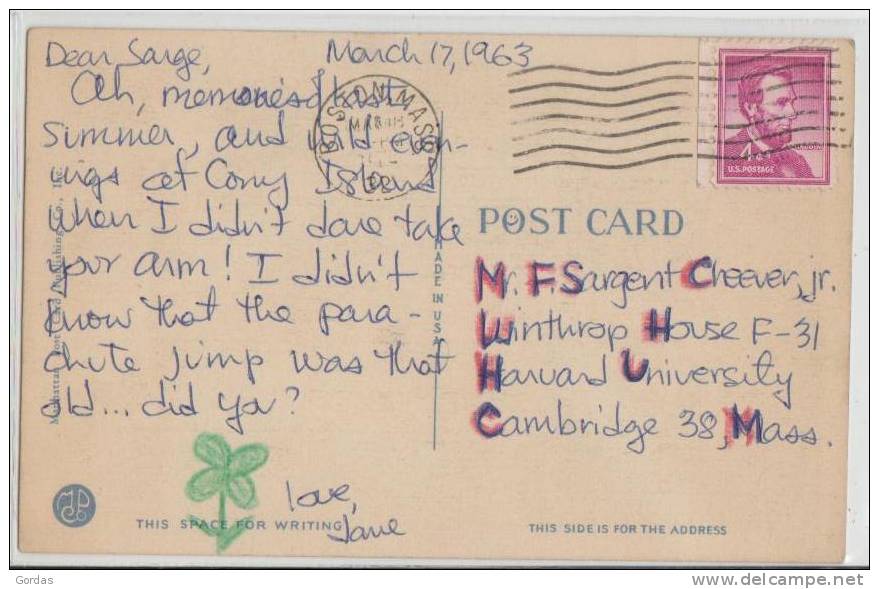 Dear Sarge, March 17, 1963
Ah, memories of last
summer, and wild even-
ings at Cony Island
When I didn't dare take
your arm! I didn't
know that the para-
chute jump was that
old... did you?
love,
Jane
BOSTON, MASS
MAR 18
POST CARD
MADE IN U.S.A.
Manhattan Post Card Publishing Co., Inc.
4¢
U.S. POSTAGE
Mr. F. Sargent Cheever, jr.
Winthrop House F-31
Harvard University
Cambridge 38, Mass.
THIS SPACE FOR WRITING
THIS SIDE IS FOR THE ADDRESS
Gordas
www.delcampe.net